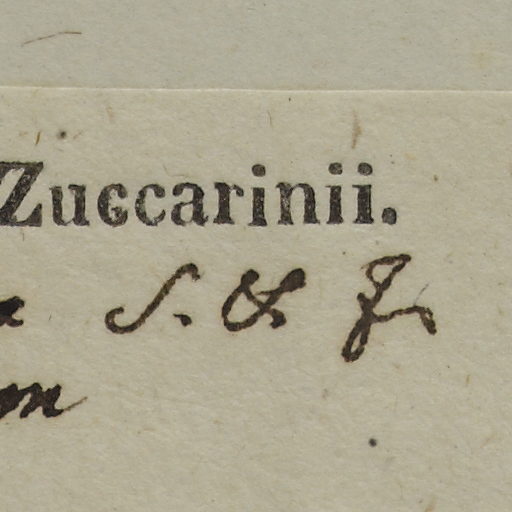 Zuccarinii.
S. & Z.